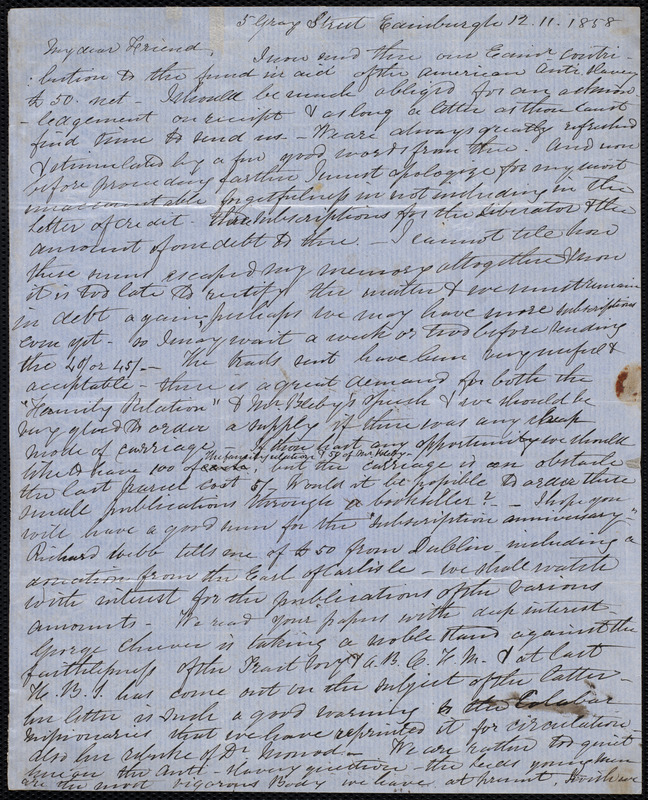 5 Gray Street Edinburgh 12.11.1858
My dear Friend,
I now send thee our Edinr contri-
:bution to the fund in aid of the American Anti-Slavery
£50. net - I should be much obliged for an acknow
-ledgement on receipt & as long a letter as thou canst
find time to send us - We are always greatly refreshed
& stimulated by a few good words from thee. And now
before proceeding farther I must apologize for my most
unaccountable forgetfulness in not including in the
Letter of Credit - the subscriptions for the Liberator & the
amount of our debt to thee. - I cannot tell how
these sums escaped my memory altogether & now
it is too late to rectify the matter & we must remain
in debt again, perhaps we may have more subscriptions
come yet - so I may wait a week or two before sending
the 40/ or 45/ - The tracts sent have been very useful &
acceptable - there is a great demand for both the
"Family Relation" & Mrs speech & we should be
very glad to order a supply if there was any cheap
mode of carriage - If thou hast any opportunity we should
like to have 100 of the family relation & 50 of Mrs but the carriage is an obstacle
the last parcel cost 5/ Would it be possible to order these
small publications through a bookseller? - I hope you
will have a good sum for the "Subscription anniversary"
Richard Webb tells me of £50 from Dublin including a
donation from the Earl of Carlisle - we shall watch
with interest for the publications of the various
amounts - We read your papers with deep interest -
George Cheever is taking a noble stand against the
faithlessness of the Tract Socy & A.B.C.F.M. & at last
H. B. S. has come out on the subject of the latter -
her letter is such a good warning to the Calabar
missionaries that we have reprinted it for circulation
also her rebuke of Dr Monod - We are rather too quiet
here on the Anti-Slavery question - the Leeds young men
are the most vigorous Body we have at present, I wish we